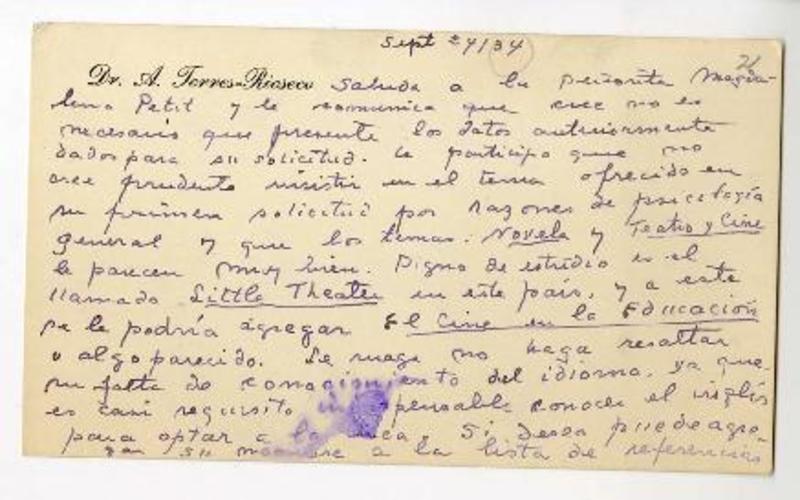 Sept 24/34
21
Dr. A. Torres-Rioseco saluda a la señorita Magda-
lena Petit y le comunica que cree no es
necesario que presente los datos anteriormente
dados para su solicitud. Le participa que no
cree prudente insistir en el tema ofrecido en
su primera solicitud por razones de psicología
general y que los temas: Novela y Teatro y Cine
le parecen muy bien. Digno de estudio es el
llamado Little Theater en este país, y a este
se le podría agregar El Cine en la Educación
o algo parecido. Le ruega no haga resaltar
su falta de conocimiento del idioma, ya que
es casi requisito pensable conocer el inglés
para optar a la Si desea puede agre-
gar su nombre a la lista de referencias